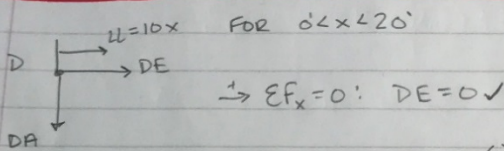 u=10x FOR 0'<x<20'
D DE
→+ ΣFx=0: DE=0 ✓
DA